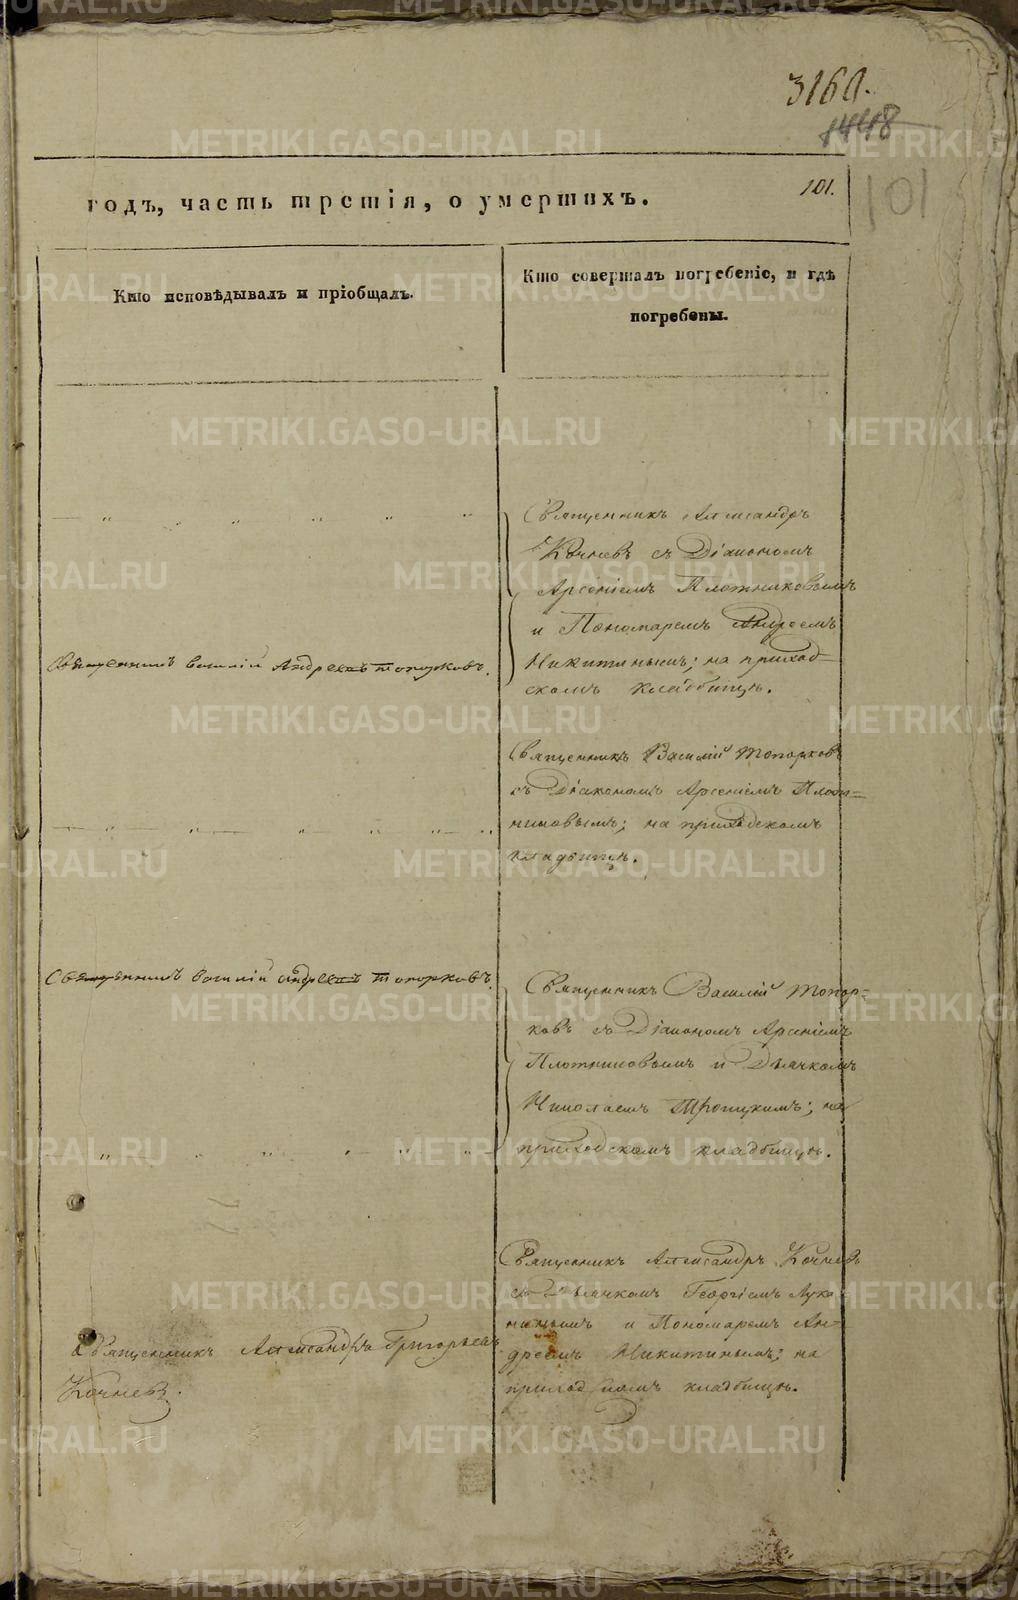 316а.
1448
101.
101
годъ, часть третія, о умершихъ.
Кто исповѣдывалъ и пріобщалъ.
Кто совершалъ погребеніе, и гдѣ
погребены.
Священникъ Александръ
Кочневъ съ Діакономъ
Арсеніемъ Плотниковымъ
и Пономаремъ Андреемъ
Священникъ Василій Андреевъ Топорковъ.
Никитинымъ; на приход-
скомъ кладбищѣ.
Священникъ Василій Топорковъ
съ Діакономъ Арсеніемъ Плот-
никовымъ; на приходскомъ
кладбищѣ.
Священникъ Василій Андреевъ Топорковъ.
Священникъ Василій Топор-
ковъ съ Діакономъ Арсеніемъ
Плотниковымъ и Дьячкомъ
Николаемъ Троицкимъ; на
приходскомъ кладбищѣ.
Священникъ Александръ Кочневъ
съ Дьячкомъ Георгіемъ Лука-
нинымъ и Пономаремъ Ан-
дреемъ Никитинымъ; на
приходскомъ кладбищѣ.
Священникъ Александръ Григорьевъ
Кочневъ.
METRIKI.GASO-URAL.RU